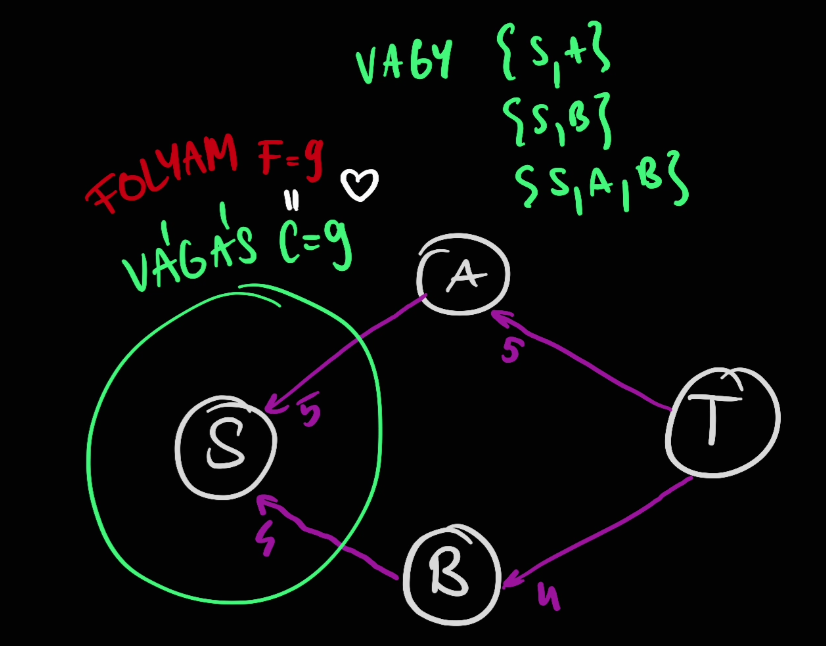 VAGY {S,A}
{S,B}
{S,A,B}
FOLYAM F=9
=
VÁGÁS C=9
A
5
5
T
S
4
B
4